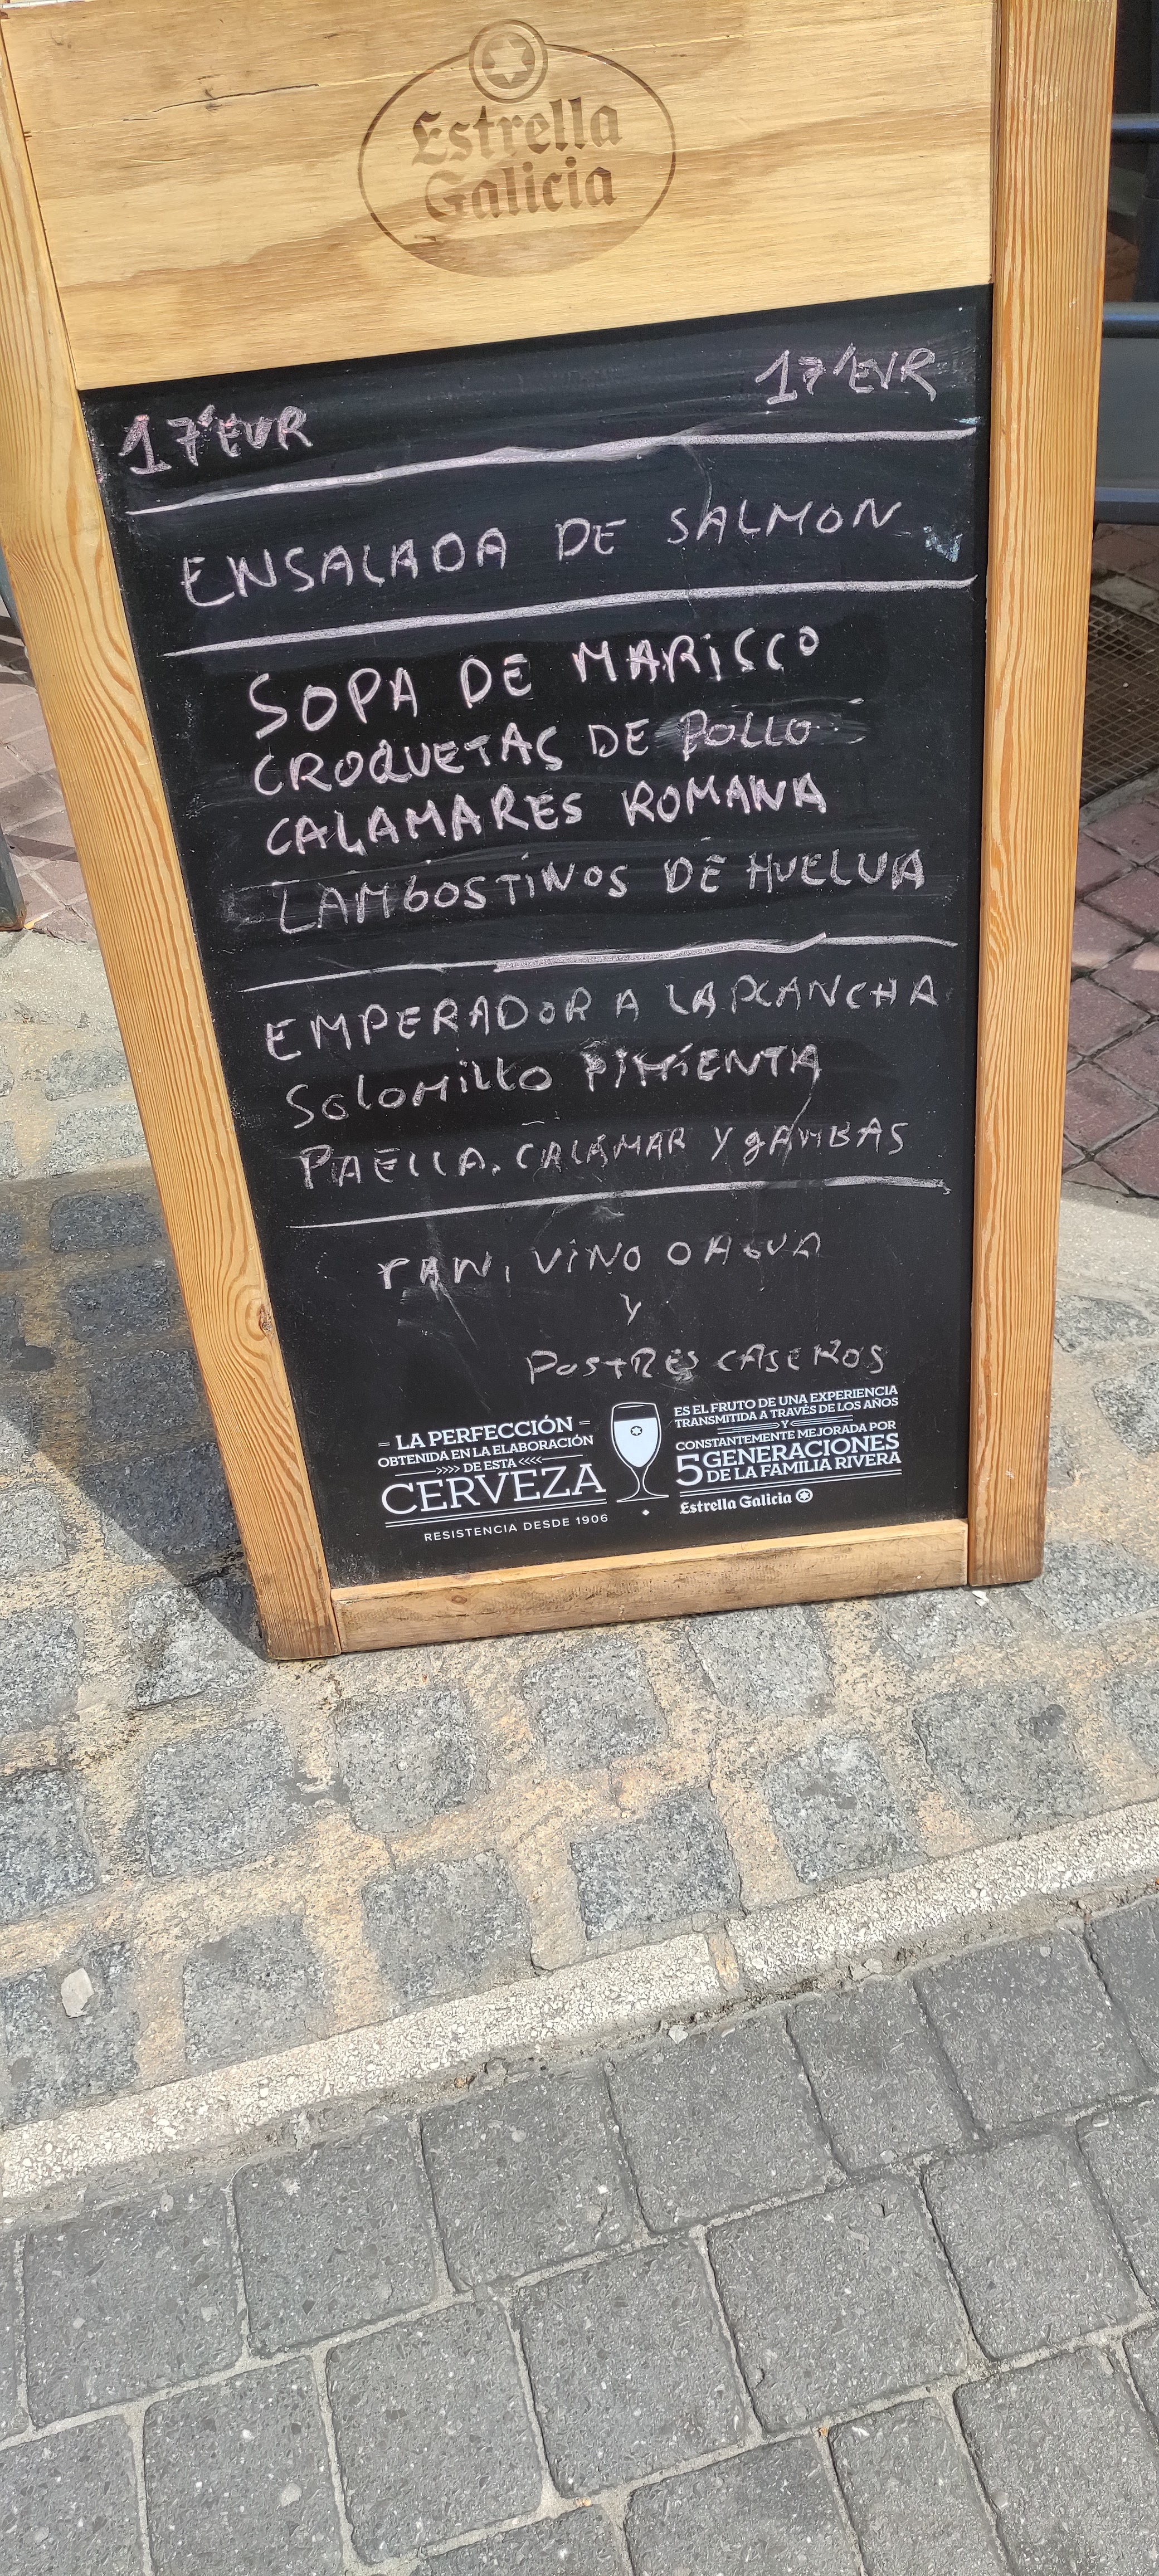 Estrella
Galicia
17'EUR 17'EUR
ENSALADA DE SALMON
SOPA DE MARiSCO
CROQUETAS DE POLLO
CALAMARES ROMANA
LAMGOSTiNOS DE HUELVA
EMPERADOR A LA PLANCHA
Solomillo PiMiENTA
PAELLA. CALAMAR Y gAMBAS
PAN, ViNO O AGUA
Y
POSTRES CASEROS
LA PERFECCIÓN
OBTENIDA EN LA ELABORACIÓN
>>>> DE ESTA <<<<
CERVEZA
RESISTENCIA DESDE 1906
ES EL FRUTO DE UNA EXPERIENCIA
TRANSMITIDA A TRAVÉS DE LOS AÑOS
Y
CONSTANTEMENTE MEJORADA POR
5 GENERACIONES
DE LA FAMILIA RIVERA
Estrella Galicia